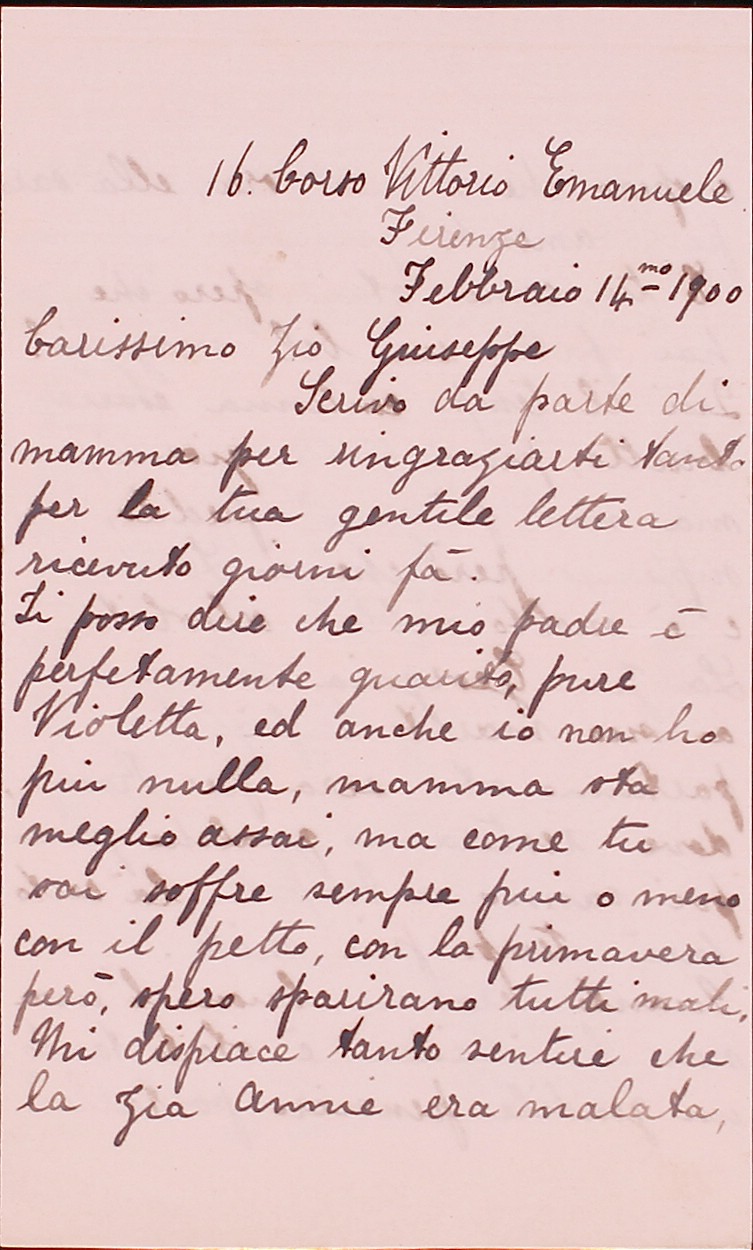 16. Corso Vittorio Emanuele
Firenze
Febbraio 14mo 1900
Carissimo Zio Giuseppe
Scrivo da parte di
mamma per ringraziarti tanto
per la tua gentile lettera
ricevuto giorni fā.
Ti posso dire che mio padre ē
perfetamente guarito, pure
Violetta, ed anche io non ho
piu nulla, mamma sta
meglio assai, ma come tu
sai soffre sempre piu o meno
con il petto, con la primavera
perō, spero sparirano tutti mali.
Mi dispiace tanto sentire che
la Zia Annie era malata,